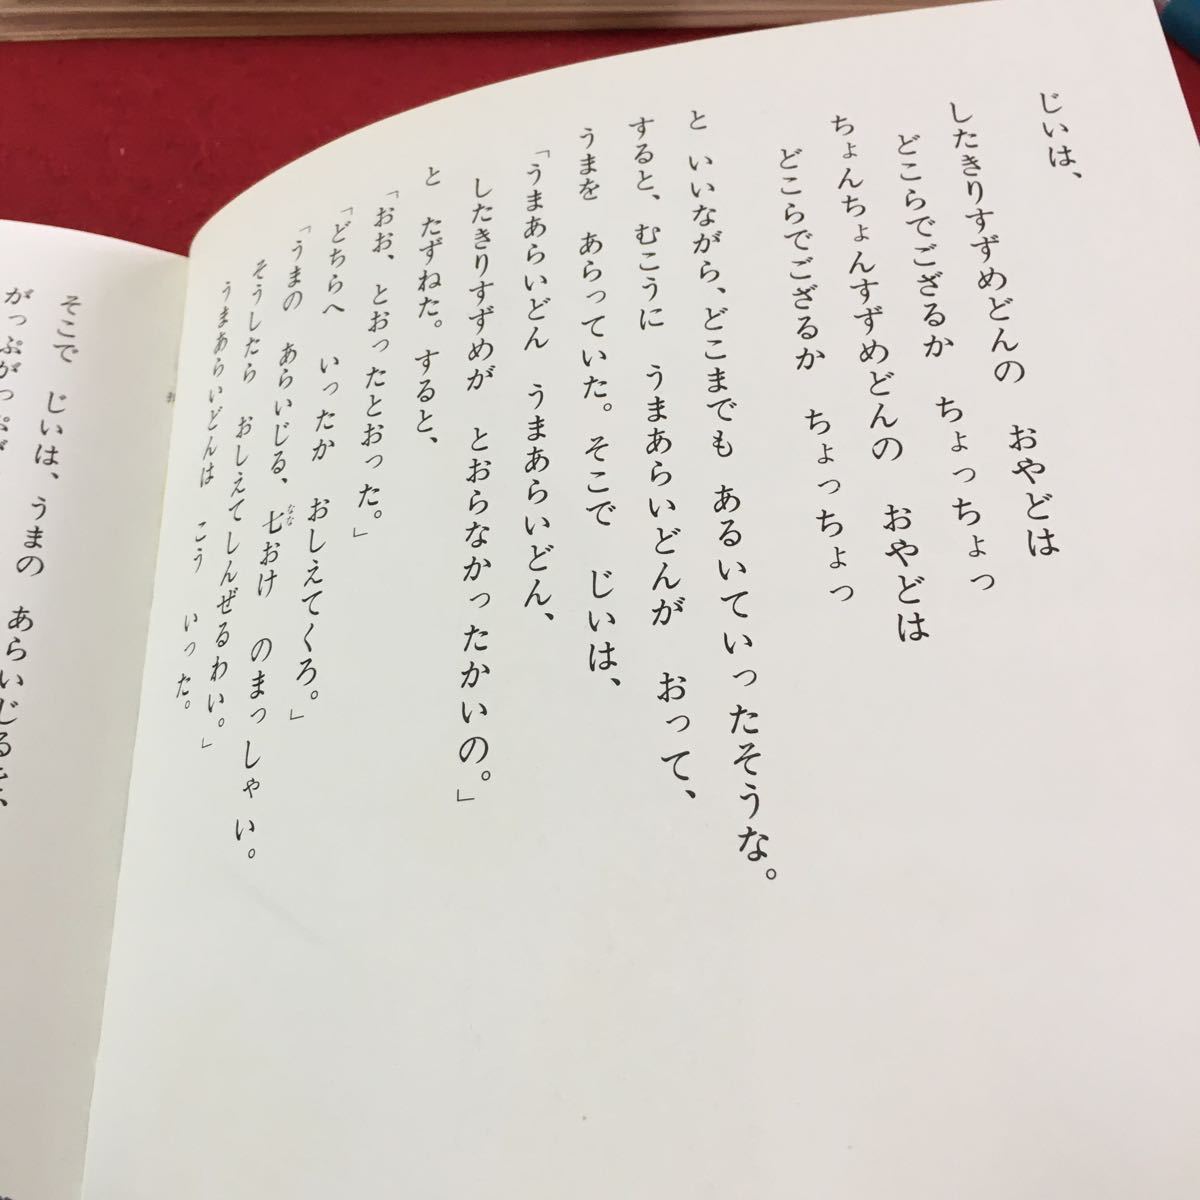 じいは、
したきりすずめどんの　おやどは
どこらでござるか　ちょっちょっ
ちょんちょんすずめどんの　おやどは
どこらでござるか　ちょっちょっ
と　いいながら、どこまでも　あるいていったそうな。
すると、むこうに　うまあらいどんが　おって、
うまを　あらっていた。そこで　じいは、
「うまあらいどん　うまあらいどん、
したきりすずめが　とおらなかったかいの。」
と　たずねた。すると、
「おお、とおったとおった。」
「どちらへ　いったか　おしえてくろ。」
「うまの　あらいじる、七おけ　のまっしゃい。
なな
そうしたら　おしえてしんぜるわい。」
うまあらいどんは　こう　いった。
そこで　じいは、うまの　あらいじるを、
がっぷがっぷが